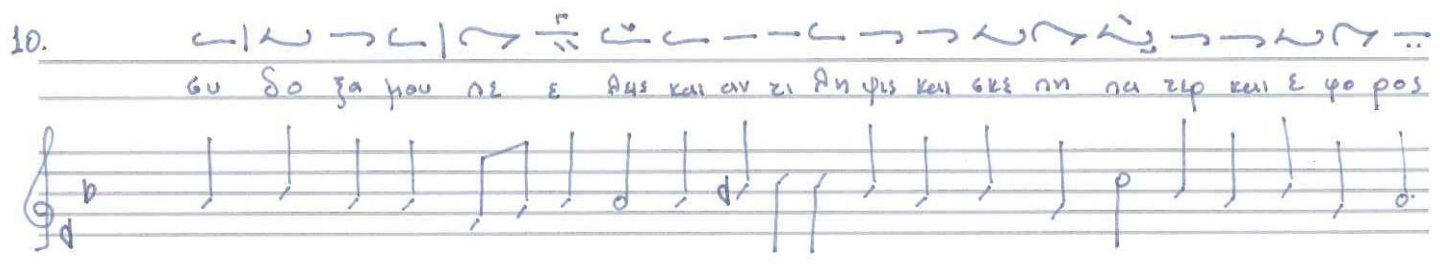 10.
συ δο ξα μου πε ε λες και αν τι λη ψις και σκε πη πα τερ και ε φο ρος